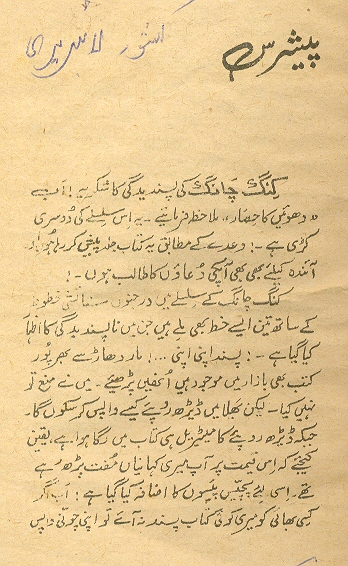 کشور لائبریری
پیشرس
کِنگ چانگ کی پسندیدگی کا شکریہ! اَب
”دھوئیں کا حصار“ ملاحظہ فرمائیے۔ یہ اِس سلسلے کی دُوسری
کڑی ہے۔! وعدے کے مطابق یہ کتاب جلد پیش کر رہا ہوں اور
آئندہ کیلئے بھی آپکی دُعاؤں کا طالب ہوں۔!
کنگ چانگ کے سلسلے میں درجنوں ستائشی خطوط
کے ساتھ تین ایسے خط بھی ملے ہیں جن میں ناپسندیدگی کا اظہار
کیا گیا ہے۔! پسند اپنی اپنی ...! مار دھاڑ سے بھرپُور
کتب بھی بازار میں موجود ہیں اُنھیں پڑھیئے۔ میں نے منع تو
نہیں کیا۔ لیکن بھلا میں ڈیڑھ روپئے کیسے واپس کر سکوں گا۔
جبکہ ڈیڑھ روپئے کا میٹریل ہی کتاب میں لگا ہوا ہے۔ یقین
کیجئے کہ اِس قیمت پر آپ میری کہانیاں مُفت پڑھ رہے
تھے۔ اِسی لئے پچیس پیسوں کا اضافہ کیا گیا ہے! اَب اگر
کِسی بھائی کو میری کوئی کتاب پسند نہ آئے تو اپنی چونی واپس